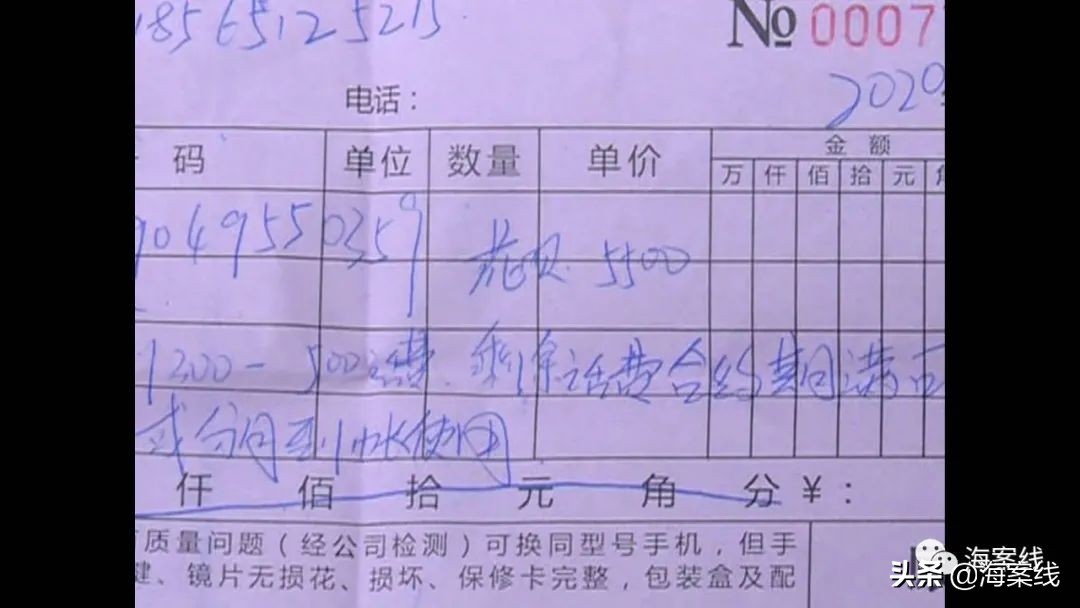 18565125215 № 00077
电话： 2020
码 单位 数量 单价 金额
万 仟 佰 拾 元 角
9049550359 花呗 5500
1200-500话费 剩余话费合约期满可
或分月到账使用
仟 佰 拾 元 角 分￥：
质量问题（经公司检测）可换同型号手机，但手
、镜片无损花、损坏、保修卡完整，包装盒及配
海案线
头条 @海案线